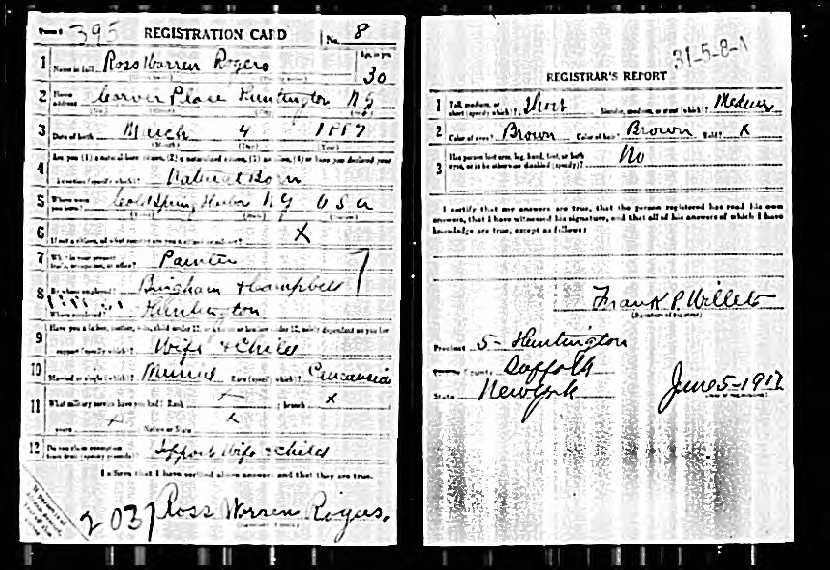 Form 1 395 REGISTRATION CARD No. 8
1 Name in full Ross Warren Rogers Age, in yrs. 30
2 Home address Carver Place Huntington NY
3 Date of birth March 4 1887
(Month) (Day) (Year)
4 Are you (1) a natural born citizen, (2) a naturalized citizen, (3) an alien, (4) or have you declared your
intention (specify which)? Natural Born
5 Where were you born? Cold Spring Harbor NY USA
6 If not a citizen, of what country are you a citizen or subject? X
7 What is your present trade, occupation, or office? Painter
8 By whom employed? Bingham & Campbell
Where employed? Huntington
9 Have you a father, mother, wife, child under 12, or a sister or brother under 12, solely dependent on you for
support (specify which)? Wife & Child
10 Married or single (which)? Married Race (specify which)? Caucasian
11 What military service have you had? Rank X ; branch X
years X Nation or State X
12 Do you claim exemption from draft (specify grounds)? Support Wife & Child
I affirm that I have verified above answers and that they are true.
2 037 Ross Warren Rogers.
31-5-8-A
REGISTRAR'S REPORT
1 Tall, medium, or short (specify which)? Short Slender, medium, or stout (which)? Medium
2 Color of eyes? Brown Color of hair? Brown Bald? X
3 Has person lost arm, leg, hand, foot, or both eyes, or is he otherwise disabled (specify)? No
I certify that my answers are true, that the person registered has read his own
answers, that I have witnessed his signature, and that all of his answers of which I have
knowledge are true, except as follows:
Frank P. Willets
(Signature of registrar)
Precinct 5 - Huntington
County Suffolk
State New York June 5-1917